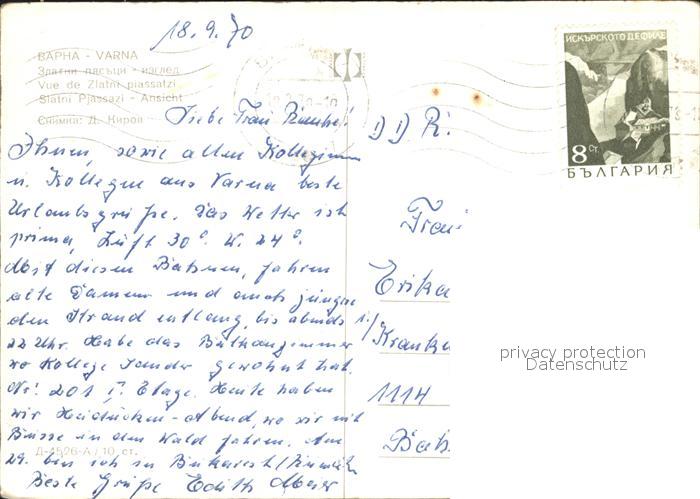 18.9.70
ВАРНА - VARNA
Златни пясъци - изглед
Vue de Zlatni piassatzi
Slatni Pjassazi - Ansicht
Снимки: Д. Киров
Liebe Frau
Ihnen, sowie allen Kolleginnen
u. Kollegen aus Varna beste
Urlaubsgrüße. Das Wetter ist
prima, Luft 30°. W. 24°.
Mit diesen Bahnen, fahren
alte Damen und auch jüngere
den Strand entlang, bis abends
22 Uhr. Habe das Balkonzimmer
wo Kollege Sander gewohnt hat.
Nr. 201 I. Etage. Heute haben
wir Haiducken-Abend, wo wir mit
Busse in den Wald fahren. Am
29. bin ich in Bukarest/
Beste Grüße Edith
Д-4526-А / 10 ст.
DDR.
Frau
Erika
i./Kranke
1114
ИСКЪРСКОТО ДЕФИЛЕ
8 СТ.
БЪЛГАРИЯ
privacy protection
Datenschutz